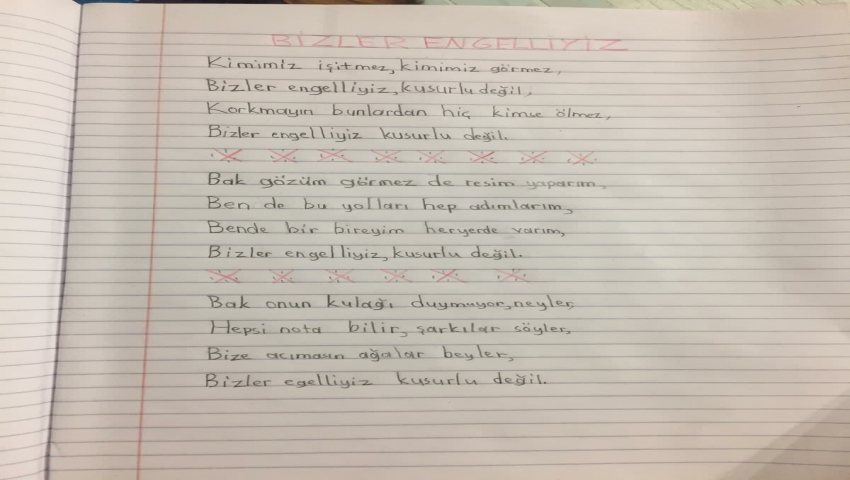 BİZLER ENGELLİYİZ
Kimimiz işitmez, kimimiz görmez,
Bizler engelliyiz, kusurlu değil,
Korkmayın bunlardan hiç kimse ölmez,
Bizler engelliyiz kusurlu değil.
Bak gözüm görmez de resim yaparım,
Ben de bu yolları hep adımlarım,
Bende bir bireyim heryerde varım,
Bizler engelliyiz, kusurlu değil.
Bak onun kulağı duymuyor, neyler,
Hepsi nota bilir, şarkılar söyler,
Bize acımasın ağalar beyler,
Bizler egelliyiz kusurlu değil.